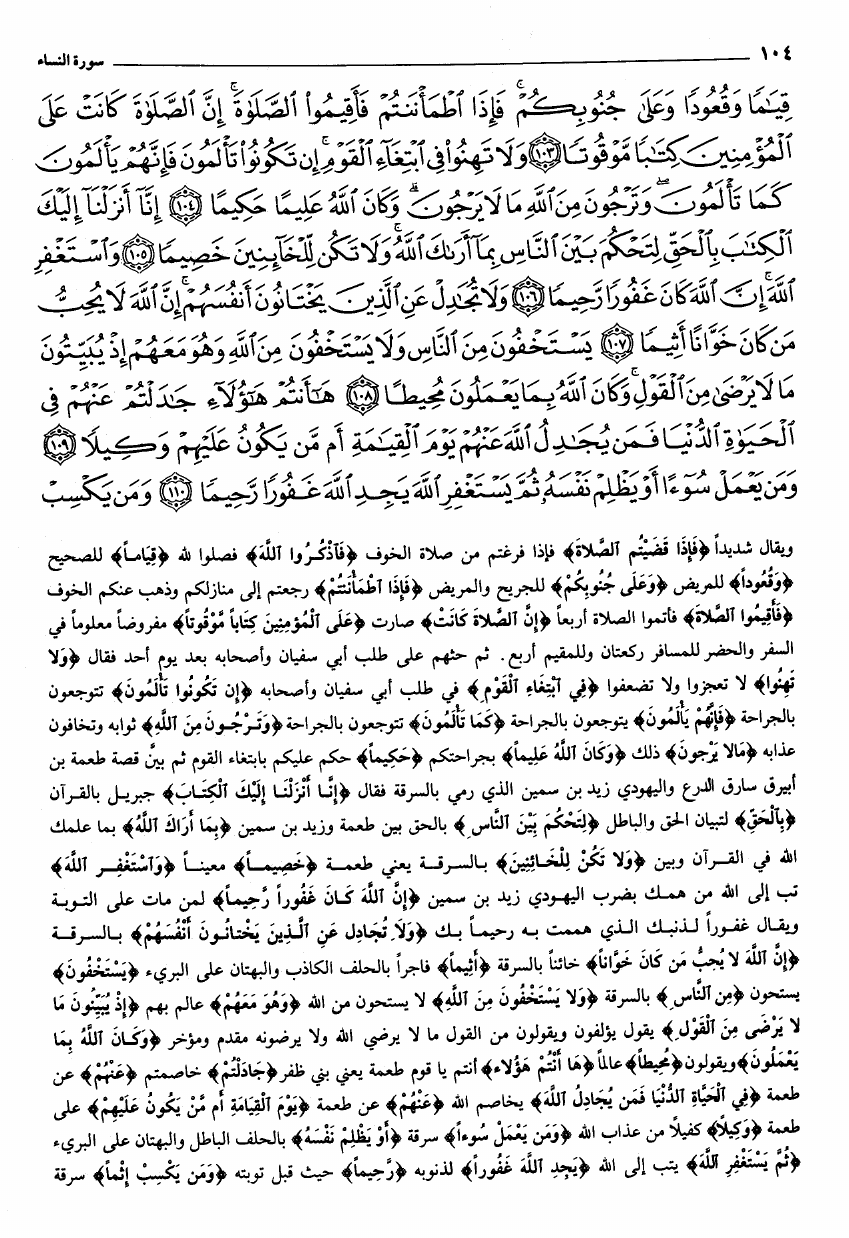 ١٠٤
سورة النساء
قِيَٰمًا وَقُعُودًا وَعَلَىٰ جُنُوبِكُمْ ۚ فَإِذَا ٱطْمَأْنَنتُمْ فَأَقِيمُوا۟ ٱلصَّلَوٰةَ ۚ إِنَّ ٱلصَّلَوٰةَ كَانَتْ عَلَى
ٱلْمُؤْمِنِينَ كِتَٰبًا مَّوْقُوتًا ١٠٣ وَلَا تَهِنُوا۟ فِى ٱبْتِغَآءِ ٱلْقَوْمِ ۖ إِن تَكُونُوا۟ تَأْلَمُونَ فَإِنَّهُمْ يَأْلَمُونَ
كَمَا تَأْلَمُونَ ۖ وَتَرْجُونَ مِنَ ٱللَّهِ مَا لَا يَرْجُونَ ۗ وَكَانَ ٱللَّهُ عَلِيمًا حَكِيمًا ١٠٤ إِنَّآ أَنزَلْنَآ إِلَيْكَ
ٱلْكِتَٰبَ بِٱلْحَقِّ لِتَحْكُمَ بَيْنَ ٱلنَّاسِ بِمَآ أَرَىٰكَ ٱللَّهُ ۚ وَلَا تَكُن لِّلْخَآئِنِينَ خَصِيمًا ١٠٥ وَٱسْتَغْفِرِ
ٱللَّهَ ۖ إِنَّ ٱللَّهَ كَانَ غَفُورًا رَّحِيمًا ١٠٦ وَلَا تُجَٰدِلْ عَنِ ٱلَّذِينَ يَخْتَانُونَ أَنفُسَهُمْ ۚ إِنَّ ٱللَّهَ لَا يُحِبُّ
مَن كَانَ خَوَّانًا أَثِيمًا ١٠٧ يَسْتَخْفُونَ مِنَ ٱلنَّاسِ وَلَا يَسْتَخْفُونَ مِنَ ٱللَّهِ وَهُوَ مَعَهُمْ إِذْ يُبَيِّتُونَ
مَا لَا يَرْضَىٰ مِنَ ٱلْقَوْلِ ۚ وَكَانَ ٱللَّهُ بِمَا يَعْمَلُونَ مُحِيطًا ١٠٨ هَٰٓأَنتُمْ هَٰٓؤُلَآءِ جَٰدَلْتُمْ عَنْهُمْ فِى
ٱلْحَيَوٰةِ ٱلدُّنْيَا فَمَن يُجَٰدِلُ ٱللَّهَ عَنْهُمْ يَوْمَ ٱلْقِيَٰمَةِ أَم مَّن يَكُونُ عَلَيْهِمْ وَكِيلًا ١٠٩
وَمَن يَعْمَلْ سُوٓءًا أَوْ يَظْلِمْ نَفْسَهُۥ ثُمَّ يَسْتَغْفِرِ ٱللَّهَ يَجِدِ ٱللَّهَ غَفُورًا رَّحِيمًا ١١٠ وَمَن يَكْسِبْ
ويقال شديداً ﴿فَإِذَا قَضَيْتُم ٱلصَّلاةَ﴾ فإذا فرغتم من صلاة الخوف ﴿فَٱذْكُرُوا ٱللَّهَ﴾ فصلوا لله ﴿قِيَاماً﴾ للصحيح
﴿وَقُعُوداً﴾ للمريض ﴿وَعَلَى جُنُوبِكُمْ﴾ للجريح والمريض ﴿فَإِذَا ٱطْمَأْنَنتُمْ﴾ رجعتم إلى منازلكم وذهب عنكم الخوف
﴿فَأَقِيمُوا ٱلصَّلاةَ﴾ فأتموا الصلاة أربعاً ﴿إِنَّ ٱلصَّلاةَ كَانَتْ﴾ صارت ﴿عَلَى ٱلْمُؤْمِنِينَ كِتَاباً مَّوْقُوتاً﴾ مفروضاً معلوماً في
السفر والحضر للمسافر ركعتان وللمقيم أربع. ثم حثهم على طلب أبي سفيان وأصحابه بعد يوم أحد فقال ﴿وَلا
تَهِنُوا﴾ لا تعجزوا ولا تضعفوا ﴿فِي ٱبْتِغَاءِ ٱلْقَوْمِ﴾ في طلب أبي سفيان وأصحابه ﴿إِن تَكُونُوا تَأْلَمُونَ﴾ تتوجعون
بالجراحة ﴿فَإِنَّهُمْ يَأْلَمُونَ﴾ يتوجعون بالجراحة ﴿كَمَا تَأْلَمُونَ﴾ تتوجعون بالجراحة ﴿وَتَرْجُونَ مِنَ ٱللَّهِ﴾ ثوابه وتخافون
عذابه ﴿مَالا يَرْجونَ﴾ ذلك ﴿وَكَانَ ٱللَّهُ عَلِيماً﴾ بجراحتكم ﴿حَكِيماً﴾ حكم عليكم بابتغاء القوم ثم بيَّن قصة طعمة بن
أبيرق سارق الدرع واليهودي زيد بن سمين الذي رمي بالسرقة فقال ﴿إِنَّا أَنْزَلْنَا إِلَيْكَ ٱلْكِتَابَ﴾ جبريل بالقرآن
﴿بِٱلْحَقِّ﴾ لتبيان الحق والباطل ﴿لِتَحْكُمَ بَيْنَ ٱلنَّاسِ﴾ بالحق بين طعمة وزيد بن سمين ﴿بِمَا أَرَاكَ ٱللَّهُ﴾ بما علمك
الله في القرآن وبين ﴿وَلا تَكُنْ لِلْخَائِنِينَ﴾ بالسرقة يعني طعمة ﴿خَصِيماً﴾ معيناً ﴿وَٱسْتَغْفِرِ ٱللَّهَ﴾
تب إلى الله من همك بضرب اليهودي زيد بن سمين ﴿إِنَّ ٱللَّهَ كَانَ غَفُوراً رَّحِيماً﴾ لمن مات على التوبة
ويقال غفوراً لذنبك الذي هممت به رحيماً بك ﴿وَلاَ تُجَادِل عَنِ ٱلَّذِينَ يَخْتانُونَ أَنْفُسَهُمْ﴾ بالسرقة
﴿إِنَّ ٱللَّهَ لا يُحِبُّ مَن كَانَ خَوَّاناً﴾ خائناً بالسرقة ﴿أَثِيماً﴾ فاجراً بالحلف الكاذب والبهتان على البريء ﴿يَسْتَخْفُونَ﴾
يستحون ﴿مِنَ ٱلنَّاسِ﴾ بالسرقة ﴿وَلا يَسْتَخْفُونَ مِنَ ٱللَّهِ﴾ لا يستحون من الله ﴿وَهُوَ مَعَهُمْ﴾ عالم بهم ﴿إِذْ يُبَيِّتُونَ مَا
لا يَرْضَى مِنَ ٱلْقَوْلِ﴾ يقول يؤلفون ويقولون من القول ما لا يرضي الله ولا يرضونه مقدم ومؤخر ﴿وَكَانَ ٱللَّهُ بِمَا
يَعْمَلُونَ﴾ ويقولون ﴿مُحِيطاً﴾ عالماً ﴿هَا أَنْتُمْ هَؤُلاءِ﴾ أنتم يا قوم طعمة يعني بني ظفر ﴿جَادَلْتُمْ﴾ خاصمتم ﴿عَنْهُمْ﴾ عن
طعمة ﴿فِي ٱلْحَيَاةِ ٱلدُّنْيَا فَمَن يُجَادِلُ ٱللَّهَ﴾ يخاصم الله ﴿عَنْهُمْ﴾ عن طعمة ﴿يَوْمَ ٱلْقِيَامَةِ أَم مَّنْ يَكُونُ عَلَيْهِمْ﴾ على
طعمة ﴿وَكِيلًا﴾ كفيلًا من عذاب الله ﴿وَمَن يَعْمَلْ سُوءاً﴾ سرقة ﴿أَوْ يَظْلِمْ نَفْسَهُ﴾ بالحلف الباطل والبهتان على البريء
﴿ثُمَّ يَسْتَغْفِرِ ٱللَّهَ﴾ يتب إلى الله ﴿يَجِدِ ٱللَّهَ غَفُوراً﴾ لذنوبه ﴿رَحِيماً﴾ حيث قبل توبته ﴿وَمَن يَكْسِبْ إِثْماً﴾ سرقة